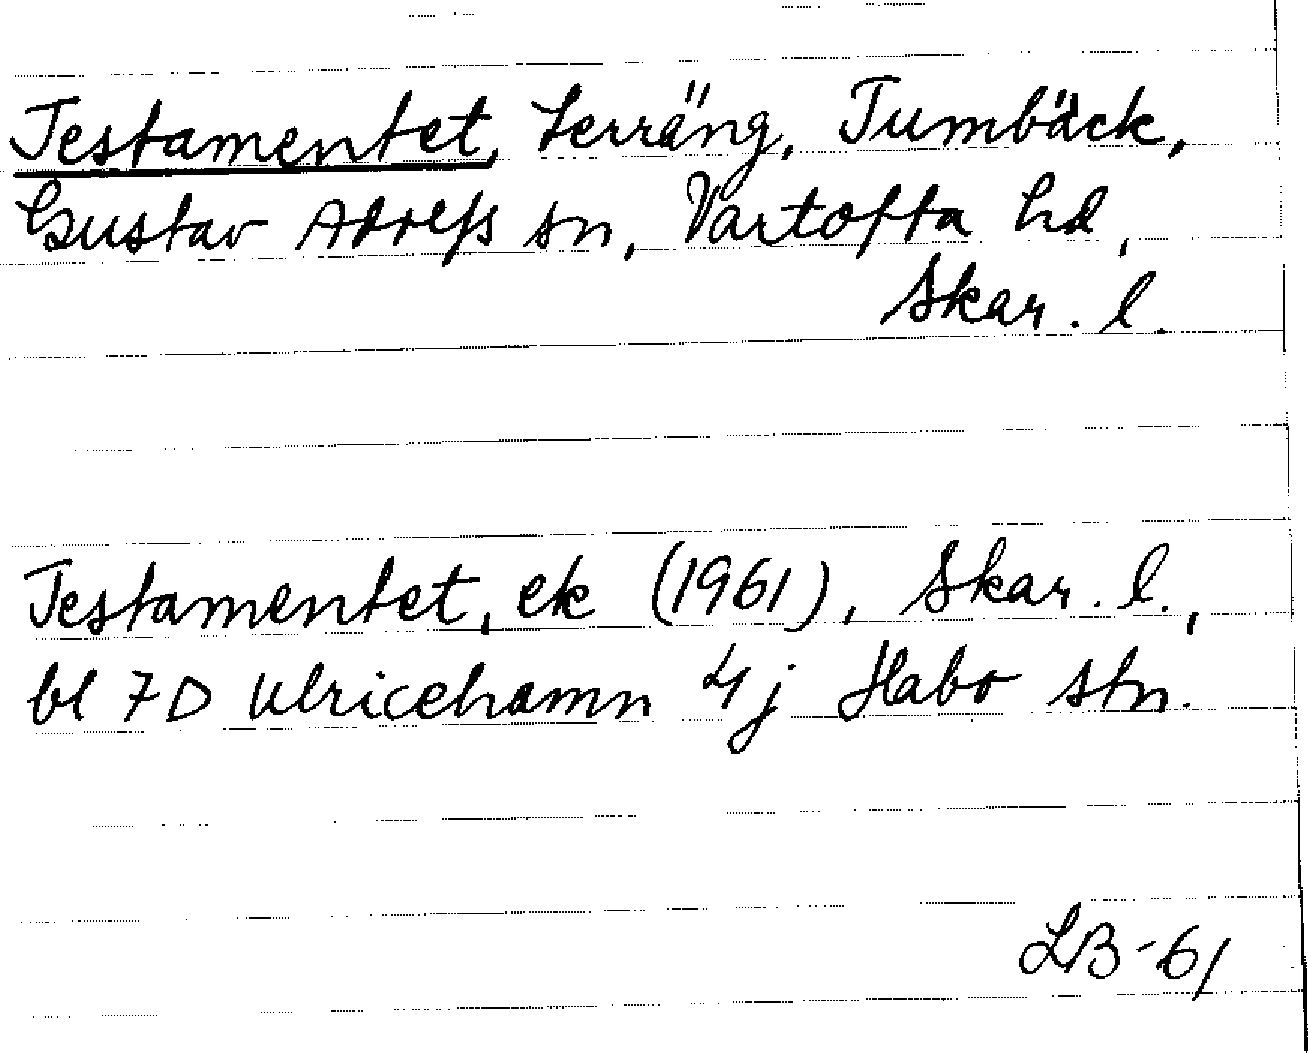 Testamentet, terräng, Tumbäck,
Gustav Adolfs sn, Vartofta hd,
Skar. l.
Testamentet, ek (1961), Skar. l.,
bl 7D Ulricehamn 4j Habo stn.
LB-61